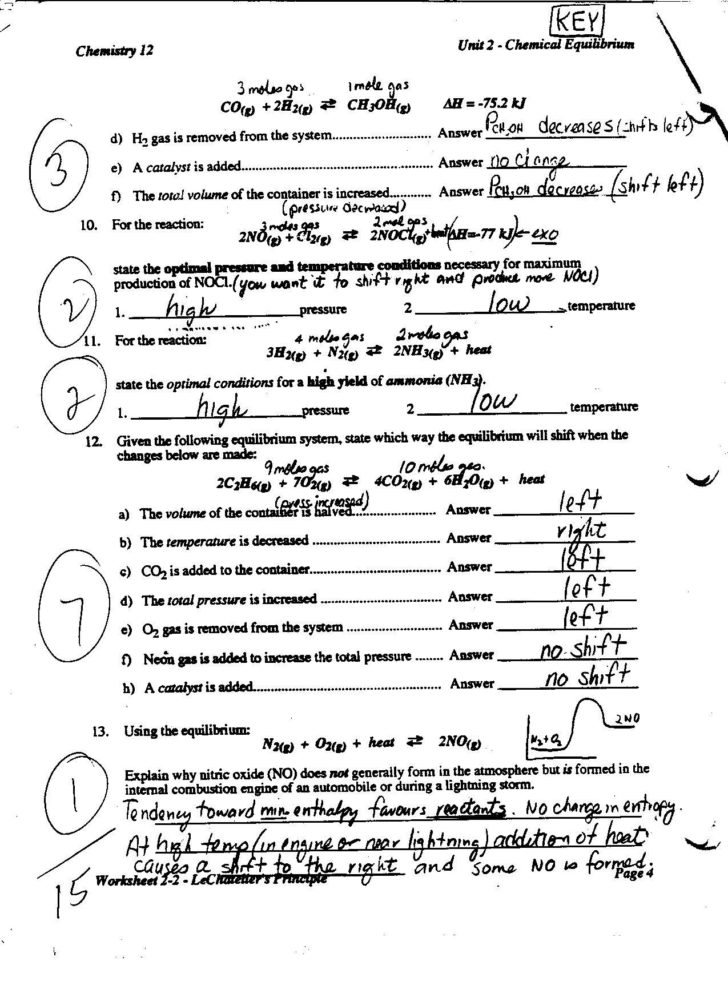 KEY
Chemistry 12
Unit 2 - Chemical Equilibrium
3 moles gas 1 mole gas
CO(g) + 2H2(g) ⇄ CH3OH(g) ΔH = -75.2 kJ
d) H2 gas is removed from the system............................. Answer PCH3OH decreases (shifts left)
3
e) A catalyst is added....................................................... Answer no change
f) The total volume of the container is increased............ Answer PCH3OH decreases (shift left)
(pressure decreased)
10. For the reaction: 3 moles gas 2 mol gas
2NO(g) + Cl2(g) ⇄ 2NOCl(g) + heat (ΔH = -77 kJ) ← exo
state the optimal pressure and temperature conditions necessary for maximum
production of NOCl. (you want it to shift right and produce more NOCl)
2
1. high pressure 2 low temperature
11. For the reaction: 4 moles gas 2 moles gas
3H2(g) + N2(g) ⇄ 2NH3(g) + heat
state the optimal conditions for a high yield of ammonia (NH3).
2
1. high pressure 2 low temperature
12. Given the following equilibrium system, state which way the equilibrium will shift when the
changes below are made:
9 moles gas 10 moles gas.
2C2H6(g) + 7O2(g) ⇄ 4CO2(g) + 6H2O(g) + heat
(press. increased)
a) The volume of the container is halved........................ Answer left
b) The temperature is decreased ..................................... Answer right
c) CO2 is added to the container...................................... Answer left
d) The total pressure is increased ................................... Answer left
7
e) O2 gas is removed from the system ............................ Answer left
f) Neon gas is added to increase the total pressure ........ Answer no shift
h) A catalyst is added...................................................... Answer no shift
13. Using the equilibrium:
N2(g) + O2(g) + heat ⇄ 2NO(g)
N2 + O2 2NO
Explain why nitric oxide (NO) does not generally form in the atmosphere but is formed in the
internal combustion engine of an automobile or during a lightning storm.
1
Tendency toward min enthalpy favours reactants. No change in entropy.
At high temp (in engine or near lightning) addition of heat
causes a shift to the right and some NO is formed.
15
Worksheet 2-2 - LeChatelier's Principle
Page 4